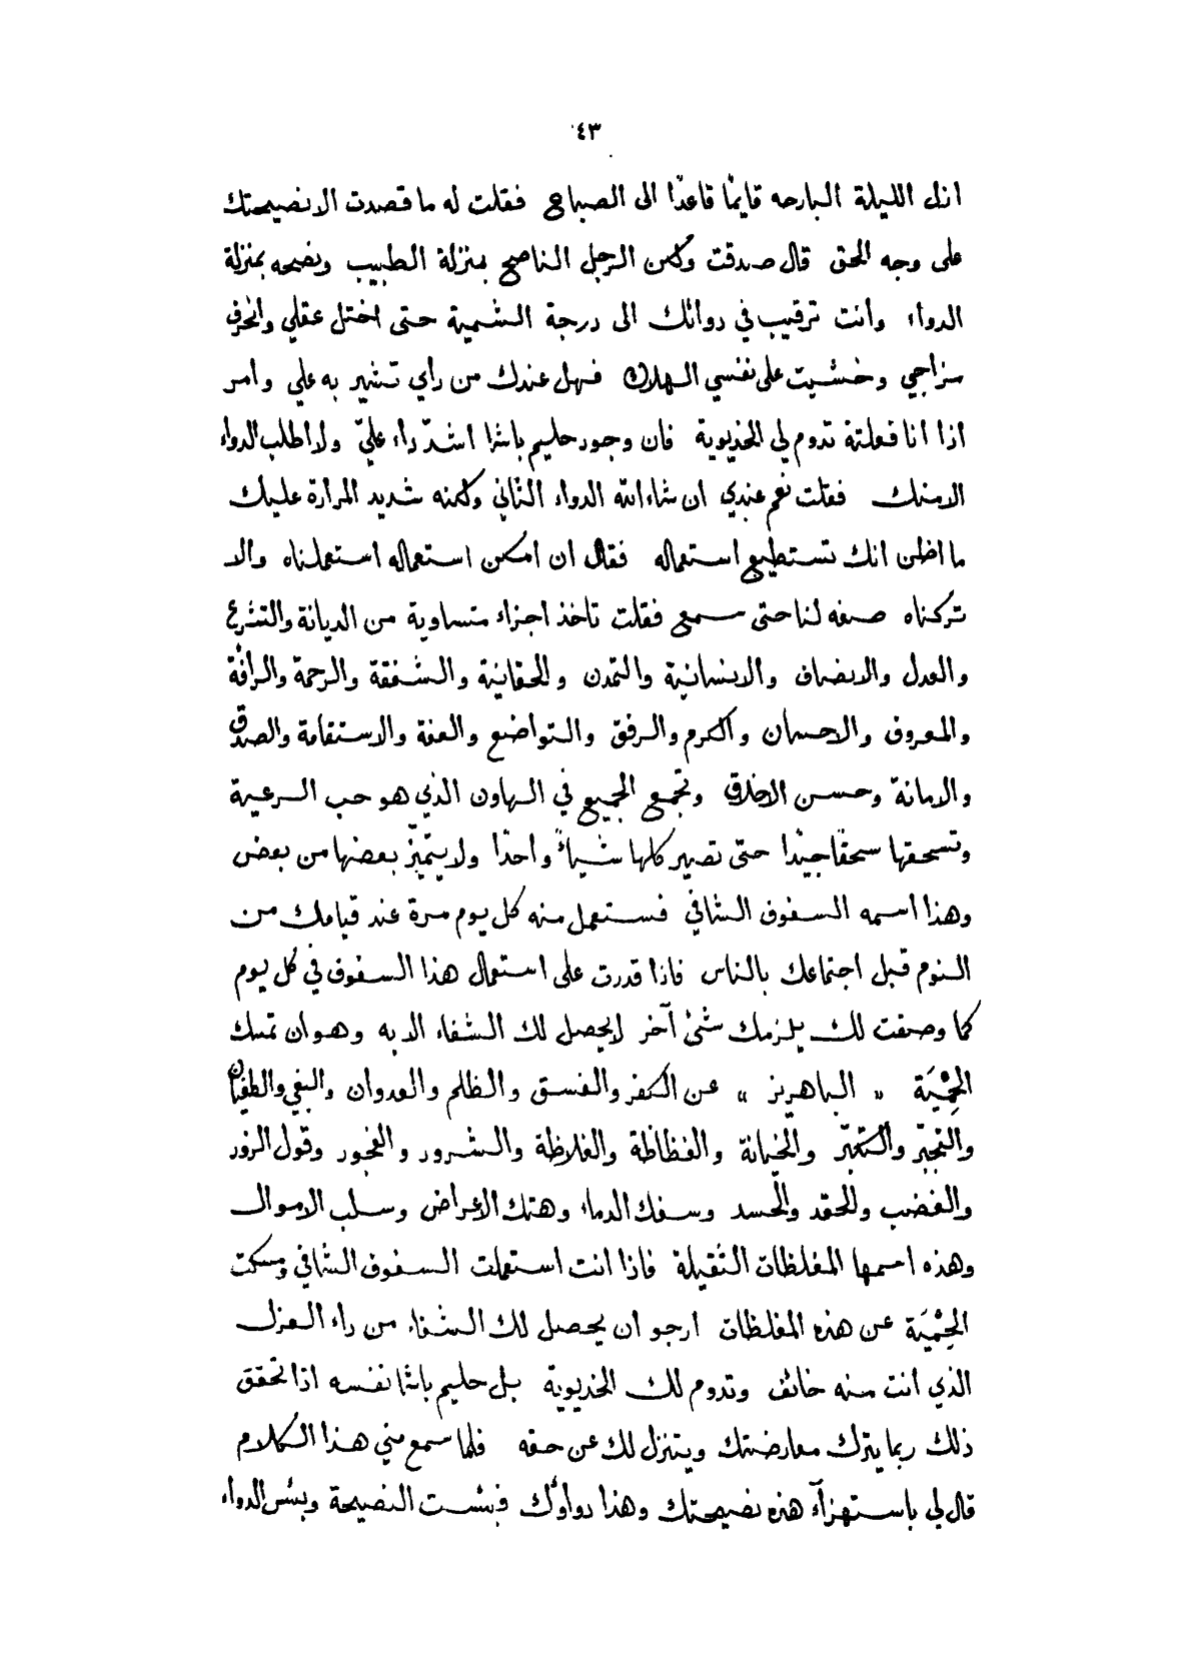 ٤٣
ازل الليلة البارحه قايمًا قاعدًا الى الصباح فقلت له ما قصدت الا نصيحتك
على وجه الحق قال صدقت ولكن الرجل الناصح بمنزلة الطبيب ونصحه بمنزلة
الدواء وانت ترقيت في دوائك الى درجة السّمية حتى اختل عقلي وانحرف
مزاجي وخشيت على نفسي الهلاك فهل عندك من رأي تشير به علي وامر
اذا انا فعلتة تدوم لي الخديوية فان وجود حليم باشا اشدّ داء عليّ ولا اطلب الدواء
الا منك فقلت نعم عندي ان شاء الله الدواء الثاني ولكنه شديد المرارة عليك
ما اظن انك تستطيع استعماله فقال ان امكن استعماله استعملناه والا
تركناه صفه لنا حتى نسمع فقلت تاخذ اجزاء متساوية من الديانة والتشرع
والعدل والانصاف والانسانية والتمدن والحقانية والشفقة والرحمة والرأفة
والمعروف والاحسان والكرم والرفق والتواضع والعفة والاستقامة والصدق
والامانة وحسن الاخلاق وتجمع الجميع في الهاون الذي هو حب الرعية
وتسحقها سحقًا جيدًا حتى تصير كلها شياءً واحدًا ولا يتميّز بعضها من بعض
وهذا اسمه السفوف الشافي فستعمل منه كل يوم مرة عند قيامك من
النوم قبل اجتماعك بالناس فاذا قدرت على استعمال هذا السفوف في كل يوم
كما وصفت لك يلزمك شئ آخر لا يحصل لك الشفاء الا به وهو ان تمسك
الحِمْيَة « الباهريز » عن الكفر والفسق والظلم والعدوان والبغي والطغيان
والتجبّر والتكبّر والخيانة والفظاظة والغلاظة والشرور والفجور وقول الزور
والغضب والحقد والحسد وسفك الدماء وهتك الاعراض وسلب الاموال
وهذه اسمها المغلظات الثقيلة فاذا انت استعملت السفوف الشافي ومسكت
الحِمْيَة عن هذه المغلظات ارجو ان يحصل لك الشفاء من داء العزل
الذي انت منه خائف وتدوم لك الخديوية بل حليم باشا نفسه اذا تحقق
ذلك ربما يترك معارضتك ويتنزل لك عن حقه فلما سمع مني هذا الكلام
قال لي باستهزآء هذه نصيحتك وهذا دواؤك فبئست النصيحة وبئس الدواء